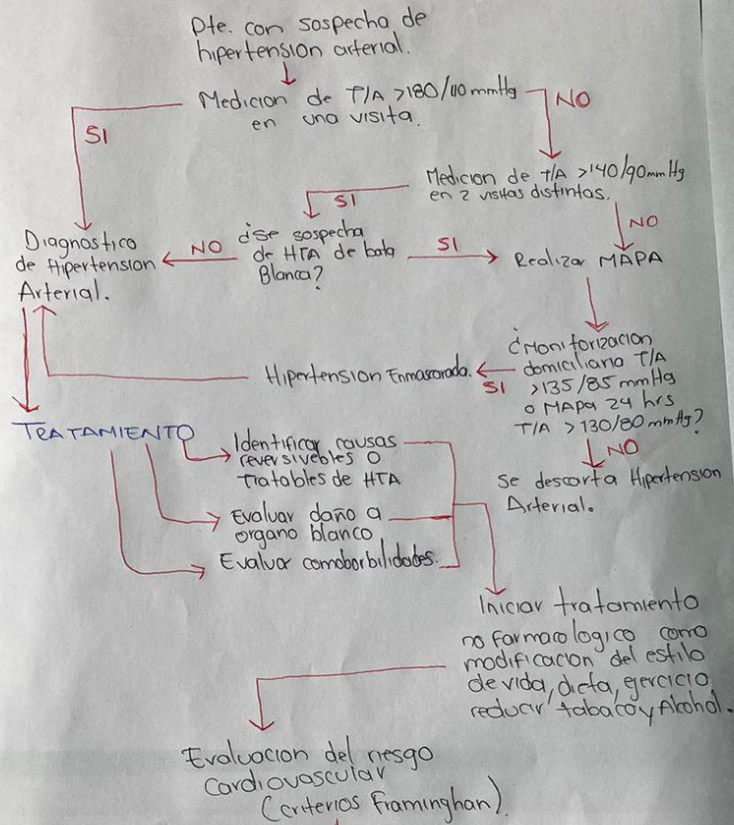 Pte. con sospecha de
hipertension arterial.
Medicion de T/A >180/110 mmHg
en una visita.
NO
SI
Medicion de T/A >140/90mmHg
en 2 visitas distintas.
SI
NO
Diagnostico
de Hipertension
Arterial.
NO
¿Se sospecha
de HTA de bata
Blanca?
SI
Realizar MAPA
¿Monitorizacion
domiciliaria T/A
>135/85 mmHg
o MAPA 24 hrs
T/A >130/80 mmHg?
Hipertension Enmascarada.
SI
NO
Se descarta Hipertension
Arterial.
TRATAMIENTO
Identificar causas
reversivebles o
tratables de HTA
Evaluar daño a
organo blanco
Evaluar comoborbilidades.
Iniciar tratamiento
no farmacologico como
modificacion del estilo
de vida, dieta, ejercicio,
reducir tabaco y Alcohol.
Evaluacion del riesgo
Cardiovascular
(criterios Framinghan)